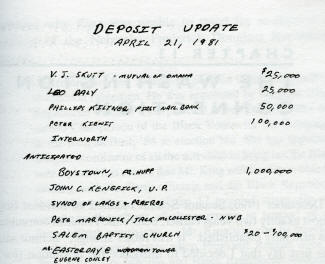 DEPOSIT UPDATE
APRIL 21, 1981
V.J. SKUTT - MUTUAL OF OMAHA $25,000
LEO DALY 25,000
PHILLIPS KILTNER FIRST NATL BANK 50,000
PETER KIEWIT 100,000
INTERNORTH
ANTICIPATED
BOYSTOWN, FR. HUPP 1,000,000
JOHN C. KENEFICK, U.P.
SYNOD OF LAKES + PRAIRIES
PETE MARROWICK / JACK MCCOLLISTER - NWB
SALEM BAPTIST CHURCH $20 - 100,000
MR. EASTERDAY @ TOWER
EUGENE CONLEY